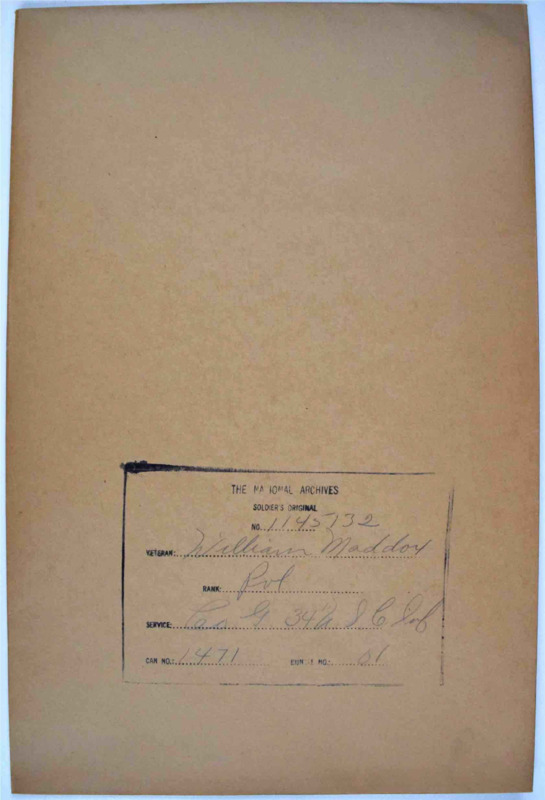 THE NATIONAL ARCHIVES
SOLDIER'S ORIGINAL
NO. 1145732
VETERAN: William Maddox
RANK: Pvt
SERVICE: Co G 34 U S C Inf
CAN NO.: 1471 NO.: 61